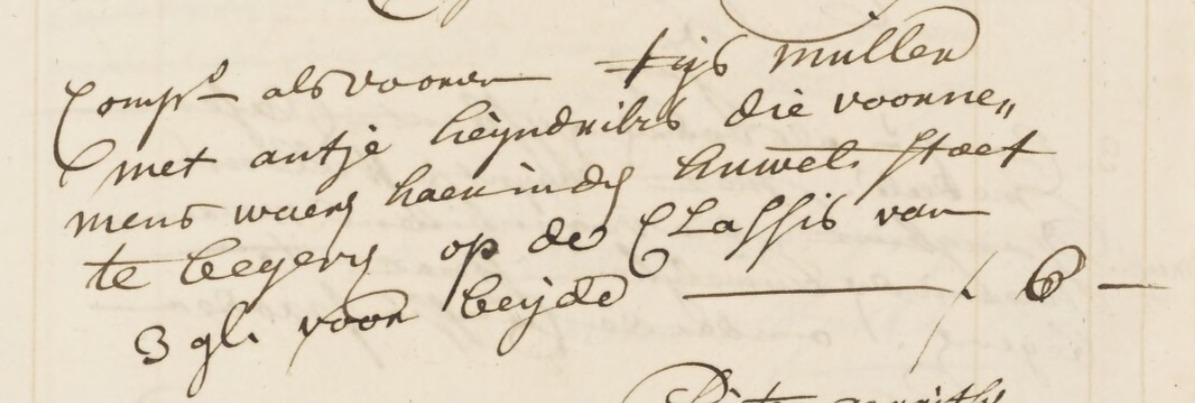 Compt als vooren tijs mullen
met antje heijndriks die voorne„
mens waeren haer in den huwel. staet
te begeven op de Classis van
3 gl. voor beijde — f 6 —